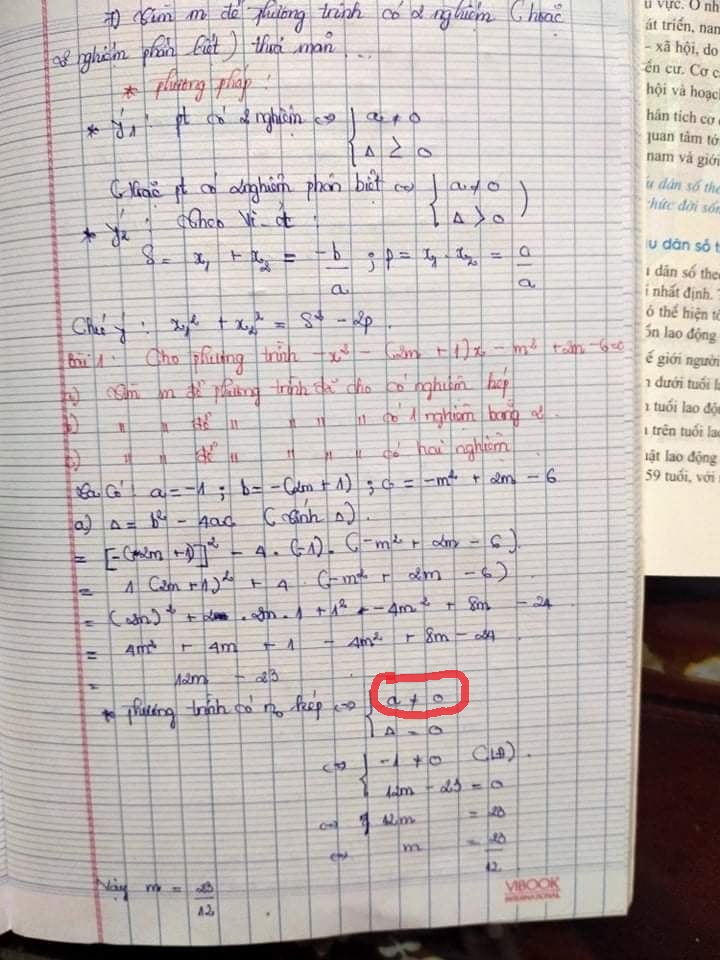 7) Tìm m để phương trình có 2 nghiệm (hoặc
2 nghiệm phân biệt) thoả mãn ...
* phương pháp:
* Ý1: pt có 2 nghiệm ⇔ { a ≠ 0
Δ ≥ 0
(Hoặc pt có 2 nghiệm phân biệt ⇔ { a ≠ 0
Δ > 0 )
* Ý2: Theo Vi-ét:
S = x₁ + x₂ = -b/a ; p = x₁ . x₂ = a/a
Chú ý: x₁² + x₂² = S² - 2p.
Bài 1: Cho phương trình -x² - (2m + 1)x - m² + 2m - 6 = 0
a) Tìm m để phương trình đã cho có nghiệm kép
b) " " để " " " " có 1 nghiệm bằng 2.
c) " " để " " " " có hai nghiệm
Ta có: a = -1 ; b = -(2m + 1) ; c = -m² + 2m - 6
a) Δ = b² - 4ac (tính Δ).
= [-(2m + 1)]² - 4 . (-1) . (-m² + 2m - 6)
= 1 (2m + 1)² + 4 . (-m² + 2m - 6)
= (2m)² + 2 . 2m . 1 + 1² + -4m² + 8m - 24
= 4m² + 4m + 1 - 4m² + 8m - 24
= 12m - 23
* Phương trình có no kép ⇔ { a ≠ 0
Δ = 0
⇔ { -1 ≠ 0 (LĐ).
12m - 23 = 0
⇔ 12m = 23
⇔ m = 23/12
Vậy m = 23/12.
VIBOOK
INTERNATIONAL
át triển, nam
- xã hội, do
ển cư. Cơ c
hội và hoạch
hân tích cơ
quan tâm tớ
nam và giới
u dân số the
chức đời sốn
u dân số t
dân số theo
i nhất định.
ó thể hiện t
ốn lao động
ế giới người
dưới tuổi l
tuổi lao độ
trên tuổi la
uật lao động
59 tuổi, với